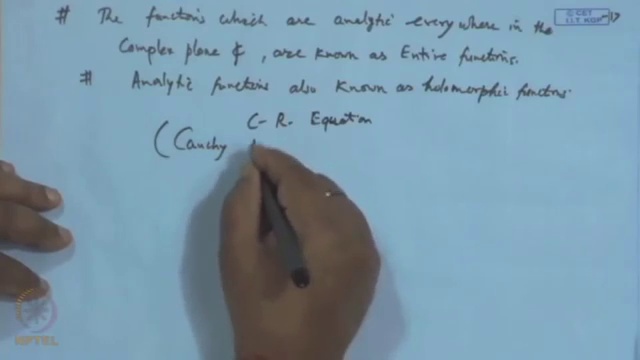 © CET
I.I.T. KGP
# The functions which are analytic everywhere in the
Complex plane ₵, are known as Entire functions.
# Analytic functions also known as holomorphic functions.
C-R. Equation
(Cauchy
NPTEL